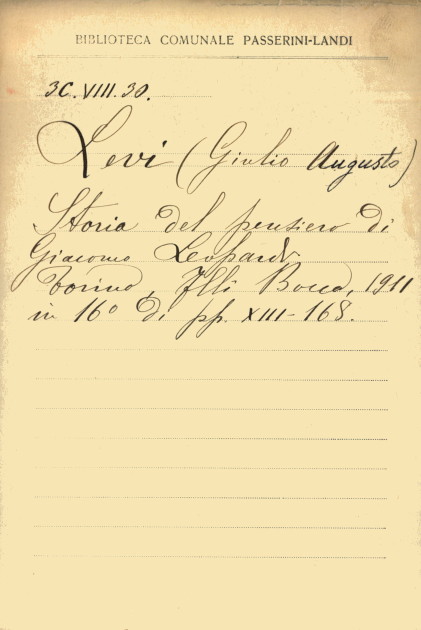 BIBLIOTECA COMUNALE PASSERINI-LANDI
3C.VIII.30.
Levi (Giulio Augusto)
Storia del pensiero di
Giacomo Leopardi
Torino, Flli Bocca, 1911
in 16º di pp. XIII-168.